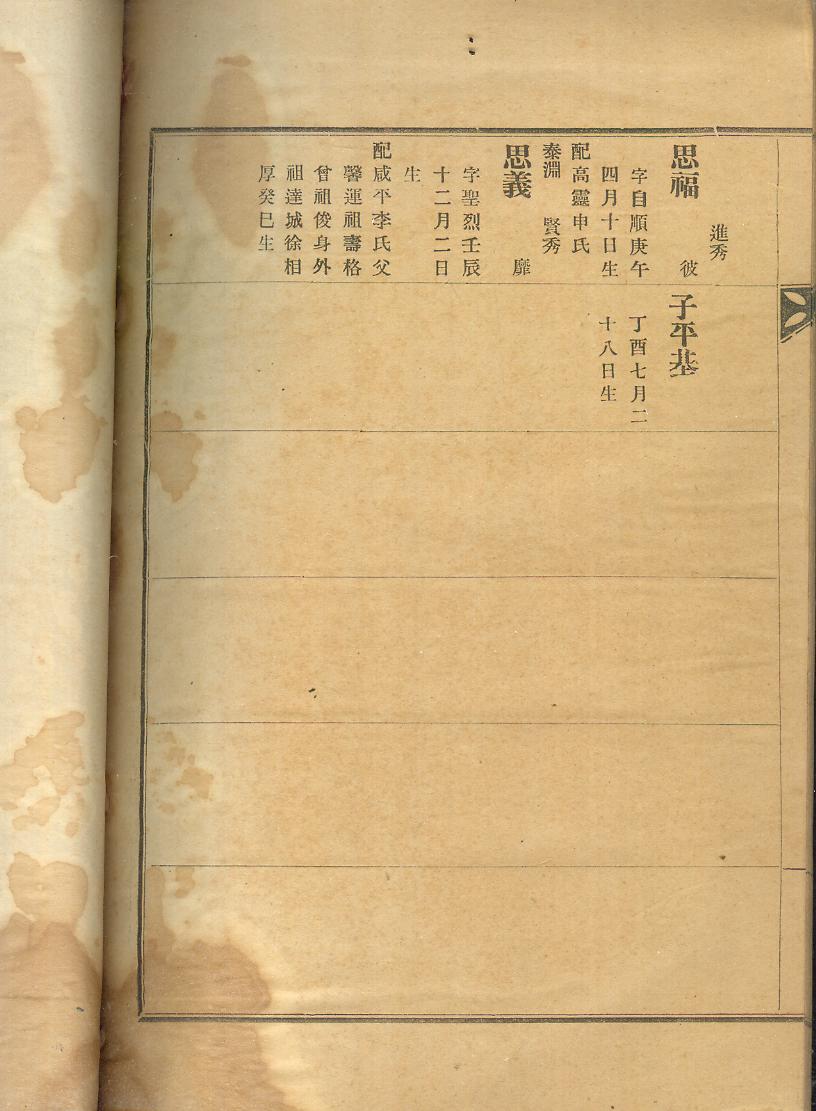 進秀
思福 彼
字自順庚午
四月十日生
配高靈申氏
泰淵 賢秀
思義 靡
字聖烈壬辰
十二月二日
生
配咸平李氏父
馨運祖壽格
曾祖俊身外
祖達城徐相
厚癸巳生
子平基
丁酉七月二
十八日生